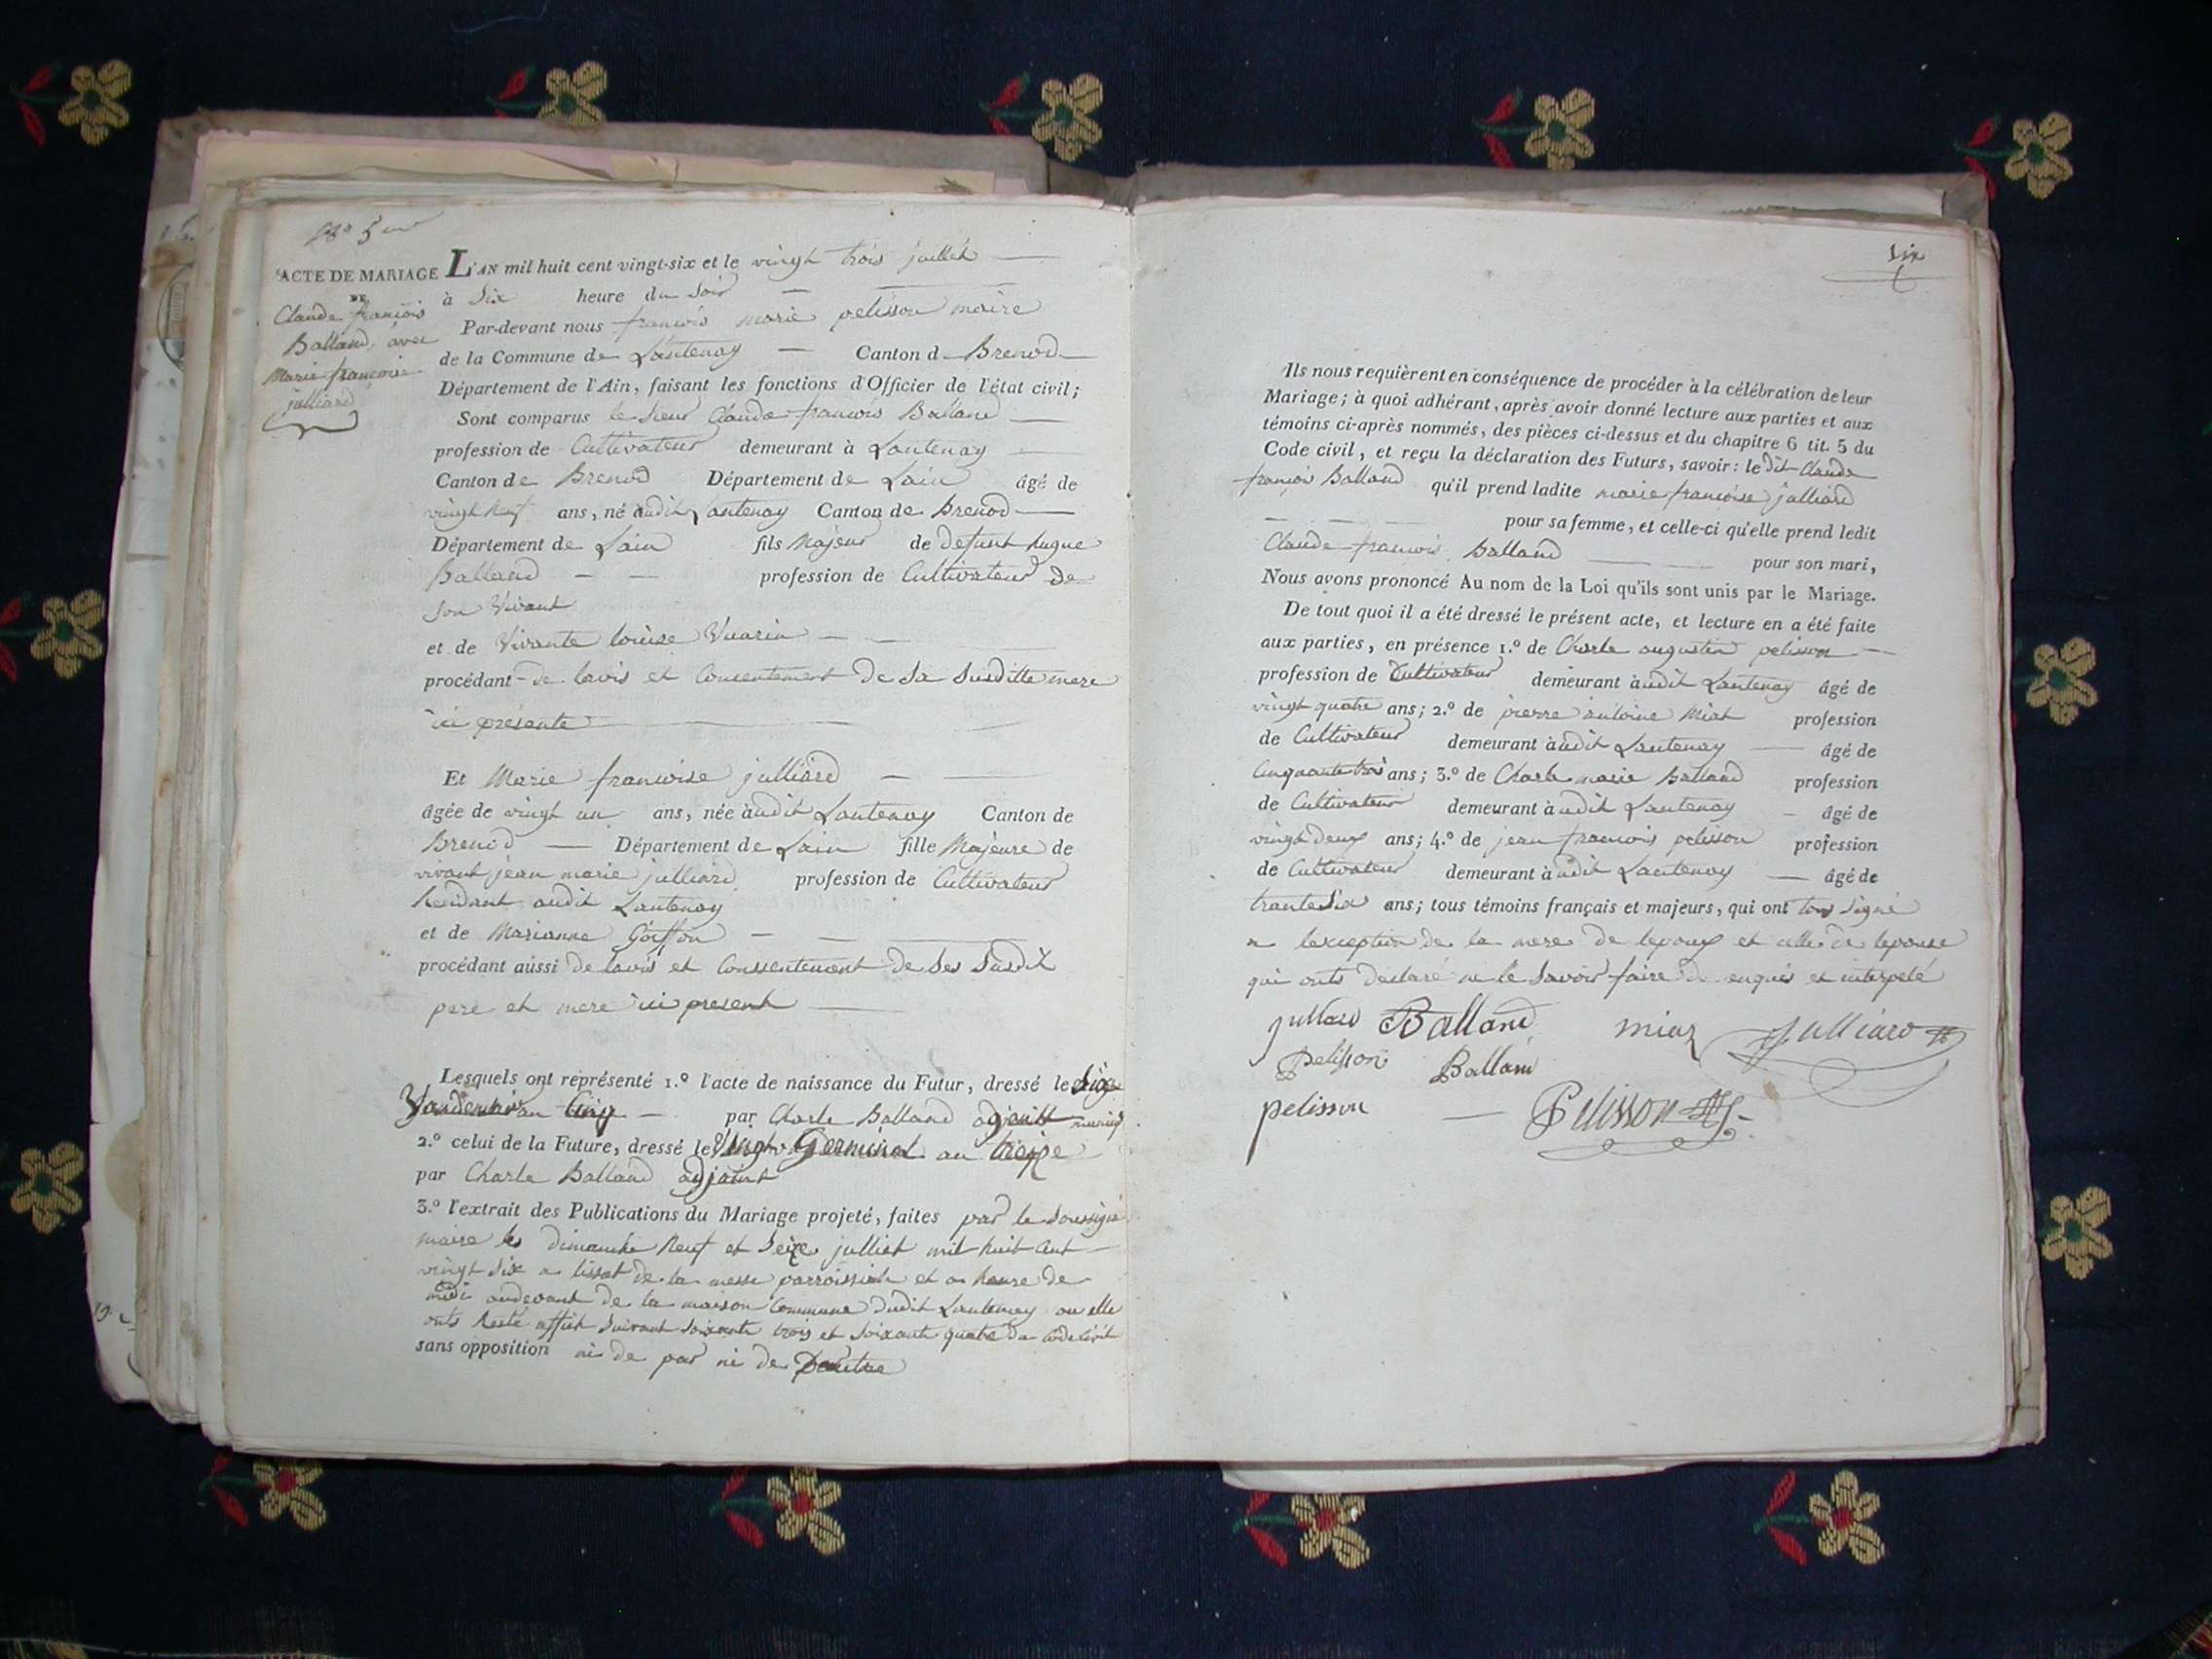 N° 5
ACTE DE MARIAGE
DE
Claude francois
Balland, avec
Marie francoise
julliard
L'AN mil huit cent vingt-six et le vingt trois juillet
à Six heure du Soir
Par-devant nous francois marie pelisson maire
de la Commune de Lantenay Canton d Brenod
Département de l'Ain, faisant les fonctions d'Officier de l'état civil;
Sont comparus le Sieur Claude francois Balland
profession de Cultivateur demeurant à Lantenay
Canton de Brenod Département de Lain âgé de
vingt neuf ans, né audit Lantenay Canton de Brenod
Département de Lain fils Majeur de defunt hugue
Balland profession de Cultivateur de
Son Vivant
et de Vivante louise Vuarin
procédant de lavis et Consentement de Sa Susditte mere
ici presente
Et Marie francoise julliard
âgée de vingt un ans, née audit Lantenay Canton de
Brenod Département de Lain fille Majeure de
vivant jean marie julliard profession de Cultivateur
Residant audit Lantenay
et de Marianne Goiffon
procédant aussi de lavis et Conssentement de Ses Susdit
pere et mere ici present
Lesquels ont représenté 1.° l'acte de naissance du Futur, dressé le
an Cinq par Charle Balland adjoint
2.° celui de la Future, dressé le Vingt Germinal an treize
par Charle Balland adjoint
3.° l'extrait des Publications du Mariage projeté, faites par le Soussigné
maire les dimanche Neuf et Seize julliet mil huit Cent
vingt Six a lissot de la messe parroissiale et a heure de
midi audevant de la maison Commune dudit Lantenay ou elle
onts Resté affiét Suivant Soixante trois et Soixante quatre du Code Civil
sans opposition ni de par ni de Dautre
Six
Ils nous requièrent en conséquence de procéder à la célébration de leur
Mariage; à quoi adhérant, après avoir donné lecture aux parties et aux
témoins ci-après nommés, des pièces ci-dessus et du chapitre 6 tit. 5 du
Code civil, et reçu la déclaration des Futurs, savoir: le dit Claude
françois Balland qu'il prend ladite marie francoise julliard
pour sa femme, et celle-ci qu'elle prend ledit
Claude francois Balland pour son mari,
Nous avons prononcé Au nom de la Loi qu'ils sont unis par le Mariage.
De tout quoi il a été dressé le présent acte, et lecture en a été faite
aux parties, en présence 1.° de Charle augustin pelisson
profession de Cultivateur demeurant à udit Lantenay âgé de
vingt quatre ans; 2.° de pierre antoine Miat profession
de Cultivateur demeurant à udit Lantenay âgé de
Cinquante trois ans; 3.° de Charle marie Balland profession
de Cultivateur demeurant à udit Lantenay âgé de
vingt deux ans; 4.° de jean francois pelisson profession
de Cultivateur demeurant à udit Lantenay âgé de
trante Six ans; tous témoins français et majeurs, qui ont tous Signé
a lexception de la mere de lepoux et celle de lepouse
qui onts declaré ne le Savoir faire de enquis et interpelé
Julliard Balland miaz Julliard
Pelisson Balland
pelisson Pelisson